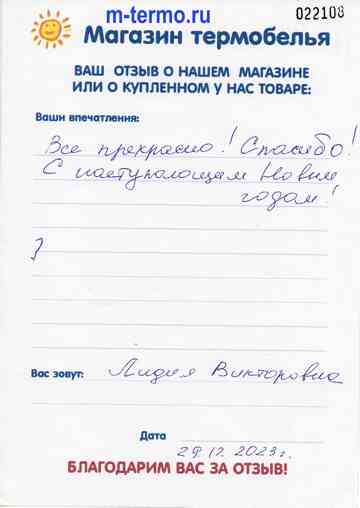 m-termo.ru
022108
Магазин термобелья
ВАШ ОТЗЫВ О НАШЕМ МАГАЗИНЕ
ИЛИ О КУПЛЕННОМ У НАС ТОВАРЕ:
Ваши впечатления:
Все прекрасно! Спасибо!
С наступающим Новым
годом!
Вас зовут: Лидия Викторовна
Дата 29.12.2023г.
БЛАГОДАРИМ ВАС ЗА ОТЗЫВ!